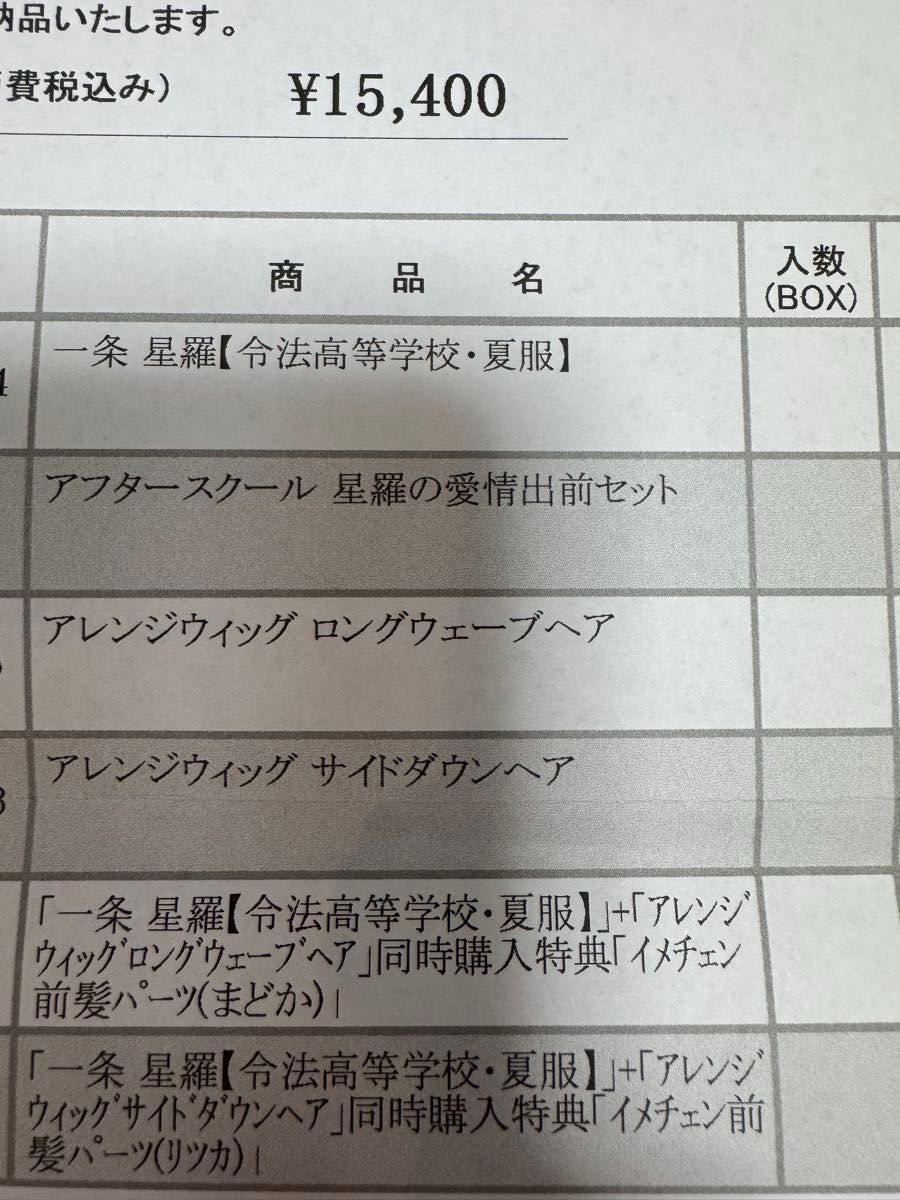 納品いたします。
費税込み) ¥15,400
商 品 名 入数
(BOX)
4 一条 星羅【令法高等学校・夏服】
アフタースクール 星羅の愛情出前セット
アレンジウィッグ ロングウェーブヘア
3 アレンジウィッグ サイドダウンヘア
「一条 星羅【令法高等学校・夏服】」+「アレンジ
ウィッグロングウェーブヘア」同時購入特典「イメチェン
前髪パーツ(まどか)」
「一条 星羅【令法高等学校・夏服】」+「アレンジ
ウィッグサイドダウンヘア」同時購入特典「イメチェン前
髪パーツ(リツカ)」